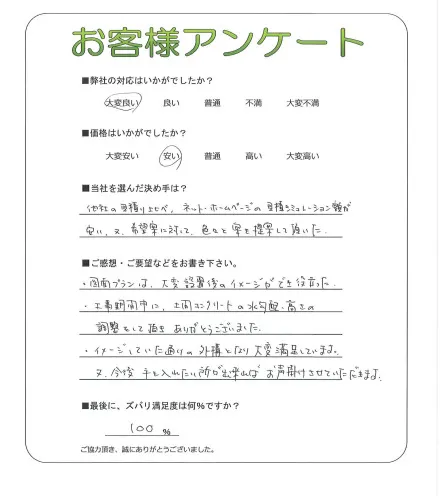 お客様アンケート
■弊社の対応はいかがでしたか？
大変良い 良い 普通 不満 大変不満
■価格はいかがでしたか？
大変安い 安い 普通 高い 大変高い
■当社を選んだ決め手は？
他社の見積り比べ、ネット・ホームページの見積シミュレーション額が
安い、又、希望案に対して、色々と案を提案して頂いた。
■ご感想・ご要望などをお書き下さい。
・図面プランは、大変設置後のイメージができ役立った。
・工事期間中に、土間コンクリートの水勾配・高さの
調整をして頂き ありがとうございました。
・イメージしていた通りの外構となり大変満足しています。
又、今後 手を入れたい所が出来れば お声掛けさせていただきます。
■最後に、ズバリ満足度は何%ですか？
100 %
ご協力頂き、誠にありがとうございました。